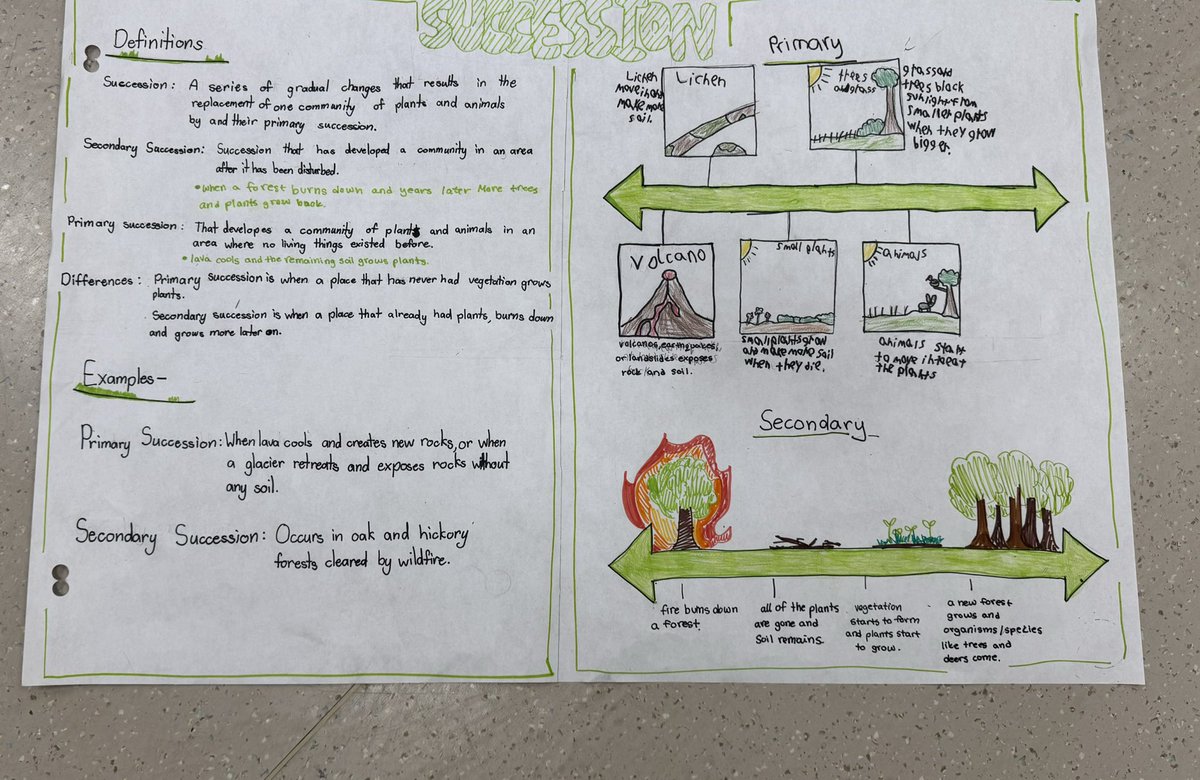 SUCCESSION
Definitions
Succession: A series of gradual changes that results in the
replacement of one community of plants and animals
by and their primary succession.
Secondary Succession: Succession that has developed a community in an area
after it has been disturbed.
•When a forest burns down and years later More trees
and plants grow back.
Primary succession: That developes a community of plants and animals in an
area where no living things existed before.
•lava cools and the remaining soil grows plants.
Differences: Primary succession is when a place that has never had vegetation grows
plants.
Secondary succession is when a place that already had plants, burns down
and grows more later on.
Examples-
Primary Succession: When lava cools and creates new rocks, or when
a glacier retreats and exposes rocks without
any soil.
Secondary Succession: Occurs in oak and hickory
forests cleared by wildfire.
Primary
Lichen
move in and
make more
soil.
Lichen
trees
and grass
grass and
trees block
sunlight from
smaller plants
when they grow
bigger.
Volcano
volcanos, earthquakes,
or landslides exposes
rock and soil.
small plants
small plants grow
and make more soil
when they die.
animals
animals start
to move in to eat
the plants
Secondary
fire burns down
a forest.
all of the plants
are gone and
Soil remains.
vegetation
starts to form
and plants start
to grow.
a new forest
grows and
organisms/species
like trees and
deers come.